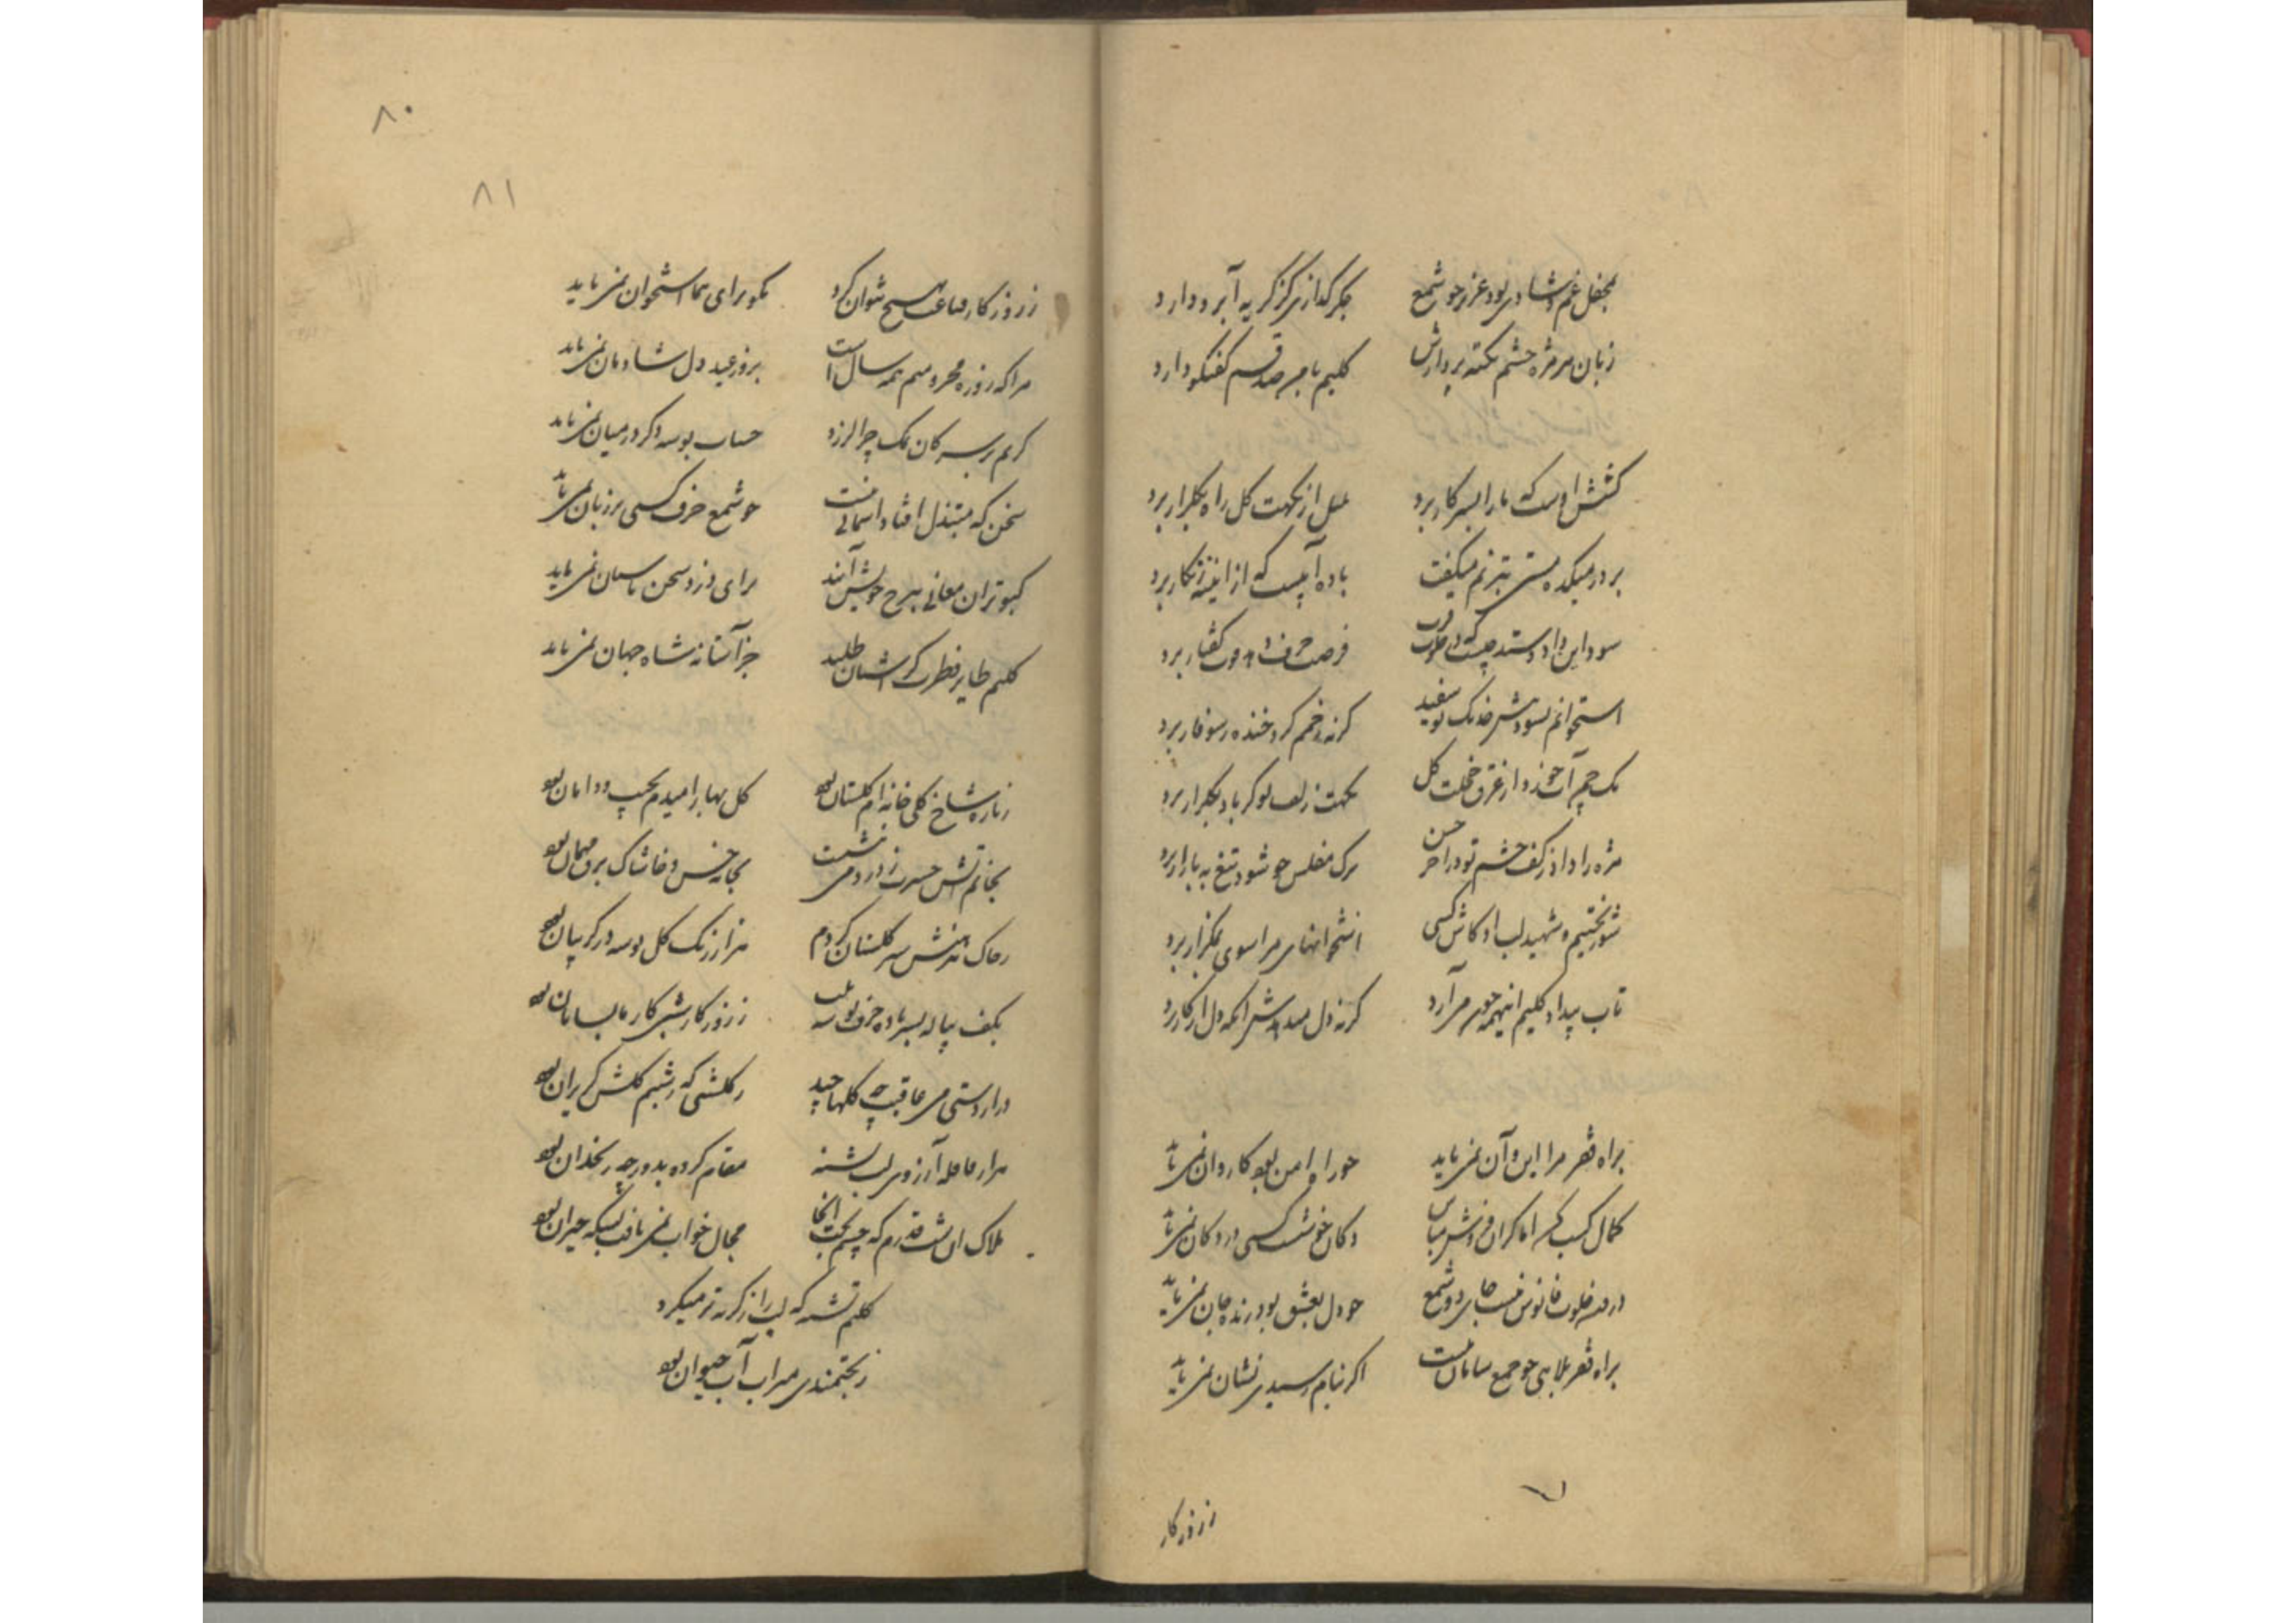 بمحفل غم و شادی بود عزیز چو شمع جگر گدازی کز گریه آبرو دارد
زبان هر مژه چشم نکته پردازش کلیم با من صد قسم گفتگو دارد
کشش اوست که ما را بسر کار برد بلبل از نکهت گل راه بگلزار برد
بر در میکده مستی بترنم میگفت باده آبیست که از اینه زنگار برد
سود این داد و ستد چیست که فرصت حرف گفتار برد
استخوانم بسود خدنک تو سفید گر نه زخمم گرو خنده ز سوفار برد
یک چمن آب خورد از عرق خجلت گل نکهت زلف تو گر باد بگلزار برد
مژه را داد ز کف چشم تو در آخر حسن ترک مفلس چو شود تیغ به بازار برد
شور بختیم و شهید لب او کاش کسی استخوانهای مرا سوی نمکزار برد
تاب بیداد کلیم اینهمه چون می آرد گر نه دل
براه فقر مرا این و آن نمی باید چو راه امن بود کاروان نمی باید
کمال کسب کن اما گران فروش مباش دکان خوشست کسی در دکان نمی باید
درین خلوت فانوس نیست جای دو شمع چو دل بعشق بود زنده جان نمی باید
براه فقر بلایی چو جمع سامان نیست اگر بنام رسیدی نشان نمی باید
ز روزگار
۸۰
۸۱
ز روزگار قناعت به هیچ نتوان کرد نکو برای هما استخوان نمی باید
مرا که روزه محرومیم همه سال است بروز عید دل شادمان نمی باید
کریم بر سر کان نمک چرا لرزد حساب بوسه دگر در میان نمی باید
سخن که مبتذل افتاد آسمانی نیست چو شمع حرف کسی بر زبان نمی باید
کبوتران معانی به برج خویش آیند برای دزد سخن پاسبان نمی باید
کلیم طایر فطرت گر آشیان طلبد جز آستانه شاه جهان نمی باید
ز تازه شاخ گلی خانه ام گلستان بود گل بهار امیدم بجیب و دامان بود
بخانه آتش حسرت ز در درمی نشست بجای خس و خاشاک برق مهمان بود
سیر گلستان کردم هزار رنگ گل بوسه در گریبان بود
بکف پیاله بسر باده حرف بوسه بلب ز روزگار شبی کار ما بسامان بود
دراز دستی من عاقبت چه گلها چید ز گلشنی که نسیم گلش گریزان بود
هزار قافله آرزوی لب تشنه مقام کرده بدور چه زنخدان بود
هلاک آن شب قدرم که چشم بخت آنجا مجال خواب نمی یافت بسکه حیران بود
کلیم تشنه که لب را ز گریه تر میکرد
ز بختمندی سیراب آب حیوان بود